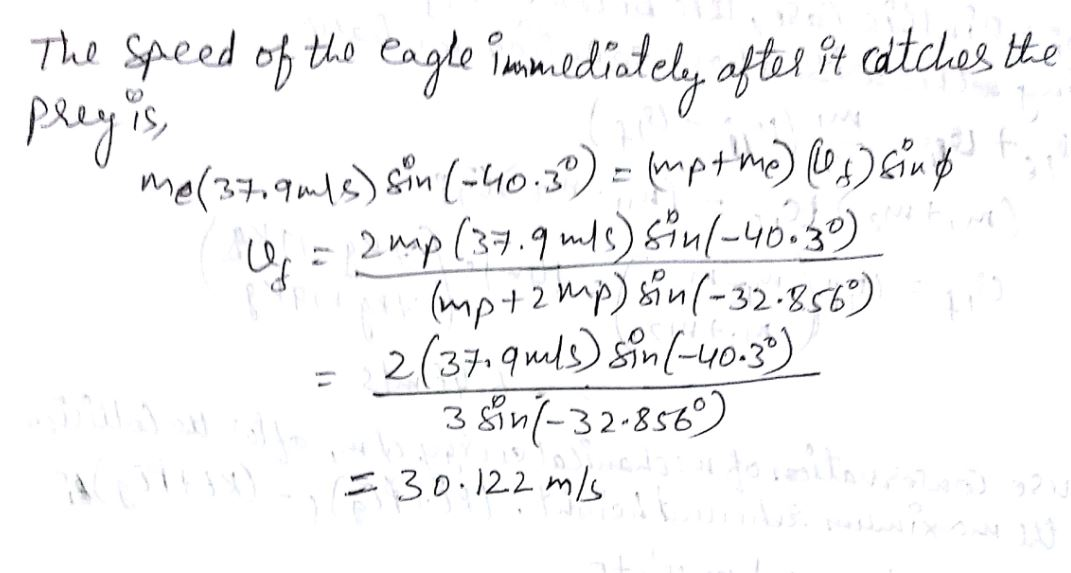 The speed of the eagle immediately after it catches the
prey is,
me(37.9m/s) sin(-40.3°) = (mp+me) (v_f) sin ϕ
v_f = 2mp (37.9 m/s) sin(-40.3°) / (mp+2mp) sin(-32.856°)
= 2(37.9m/s) sin(-40.3°) / 3 sin(-32.856°)
= 30.122 m/s